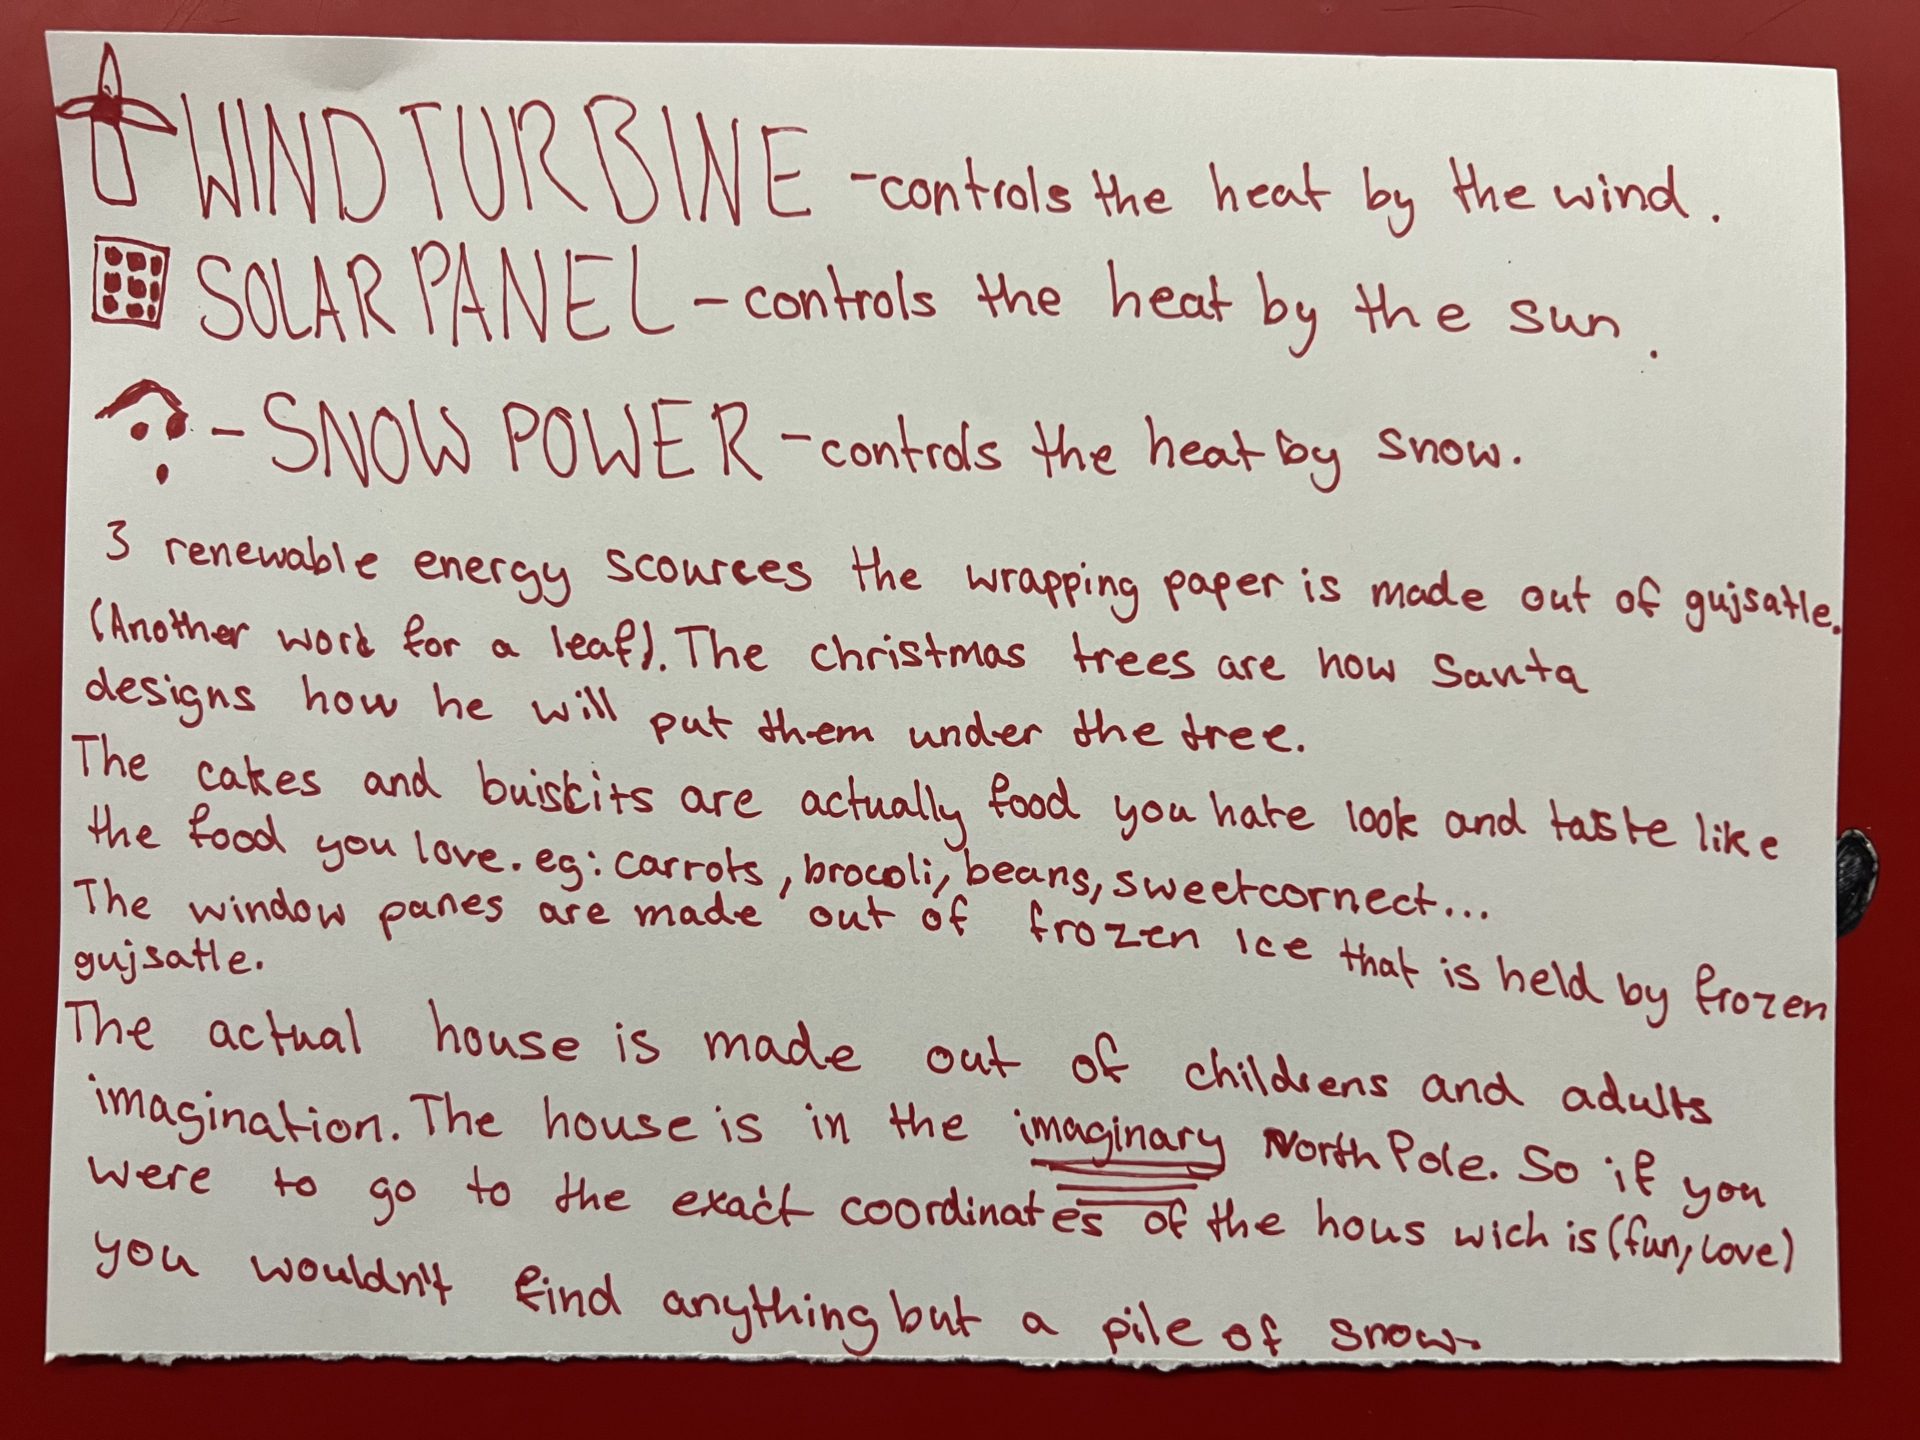 WIND TURBINE -controls the heat by the wind.
SOLAR PANEL - controls the heat by the sun.
- SNOW POWER - controls the heat by snow.
3 renewable energy scources the wrapping paper is made out of gujsatle.
(Another word for a leaf). The christmas trees are how Santa
designs how he will put them under the tree.
The cakes and buiskits are actually food you hate look and taste like
the food you love. eg: carrots, brocoli, beans, sweetcornect...
The window panes are made out of frozen Ice that is held by frozen
gujsatle.
The actual house is made out of childrens and adults
imagination. The house is in the imaginary North Pole. So if you
were to go to the exact coordinates of the hous wich is (fun, love)
you wouldn't find anything but a pile of snow.